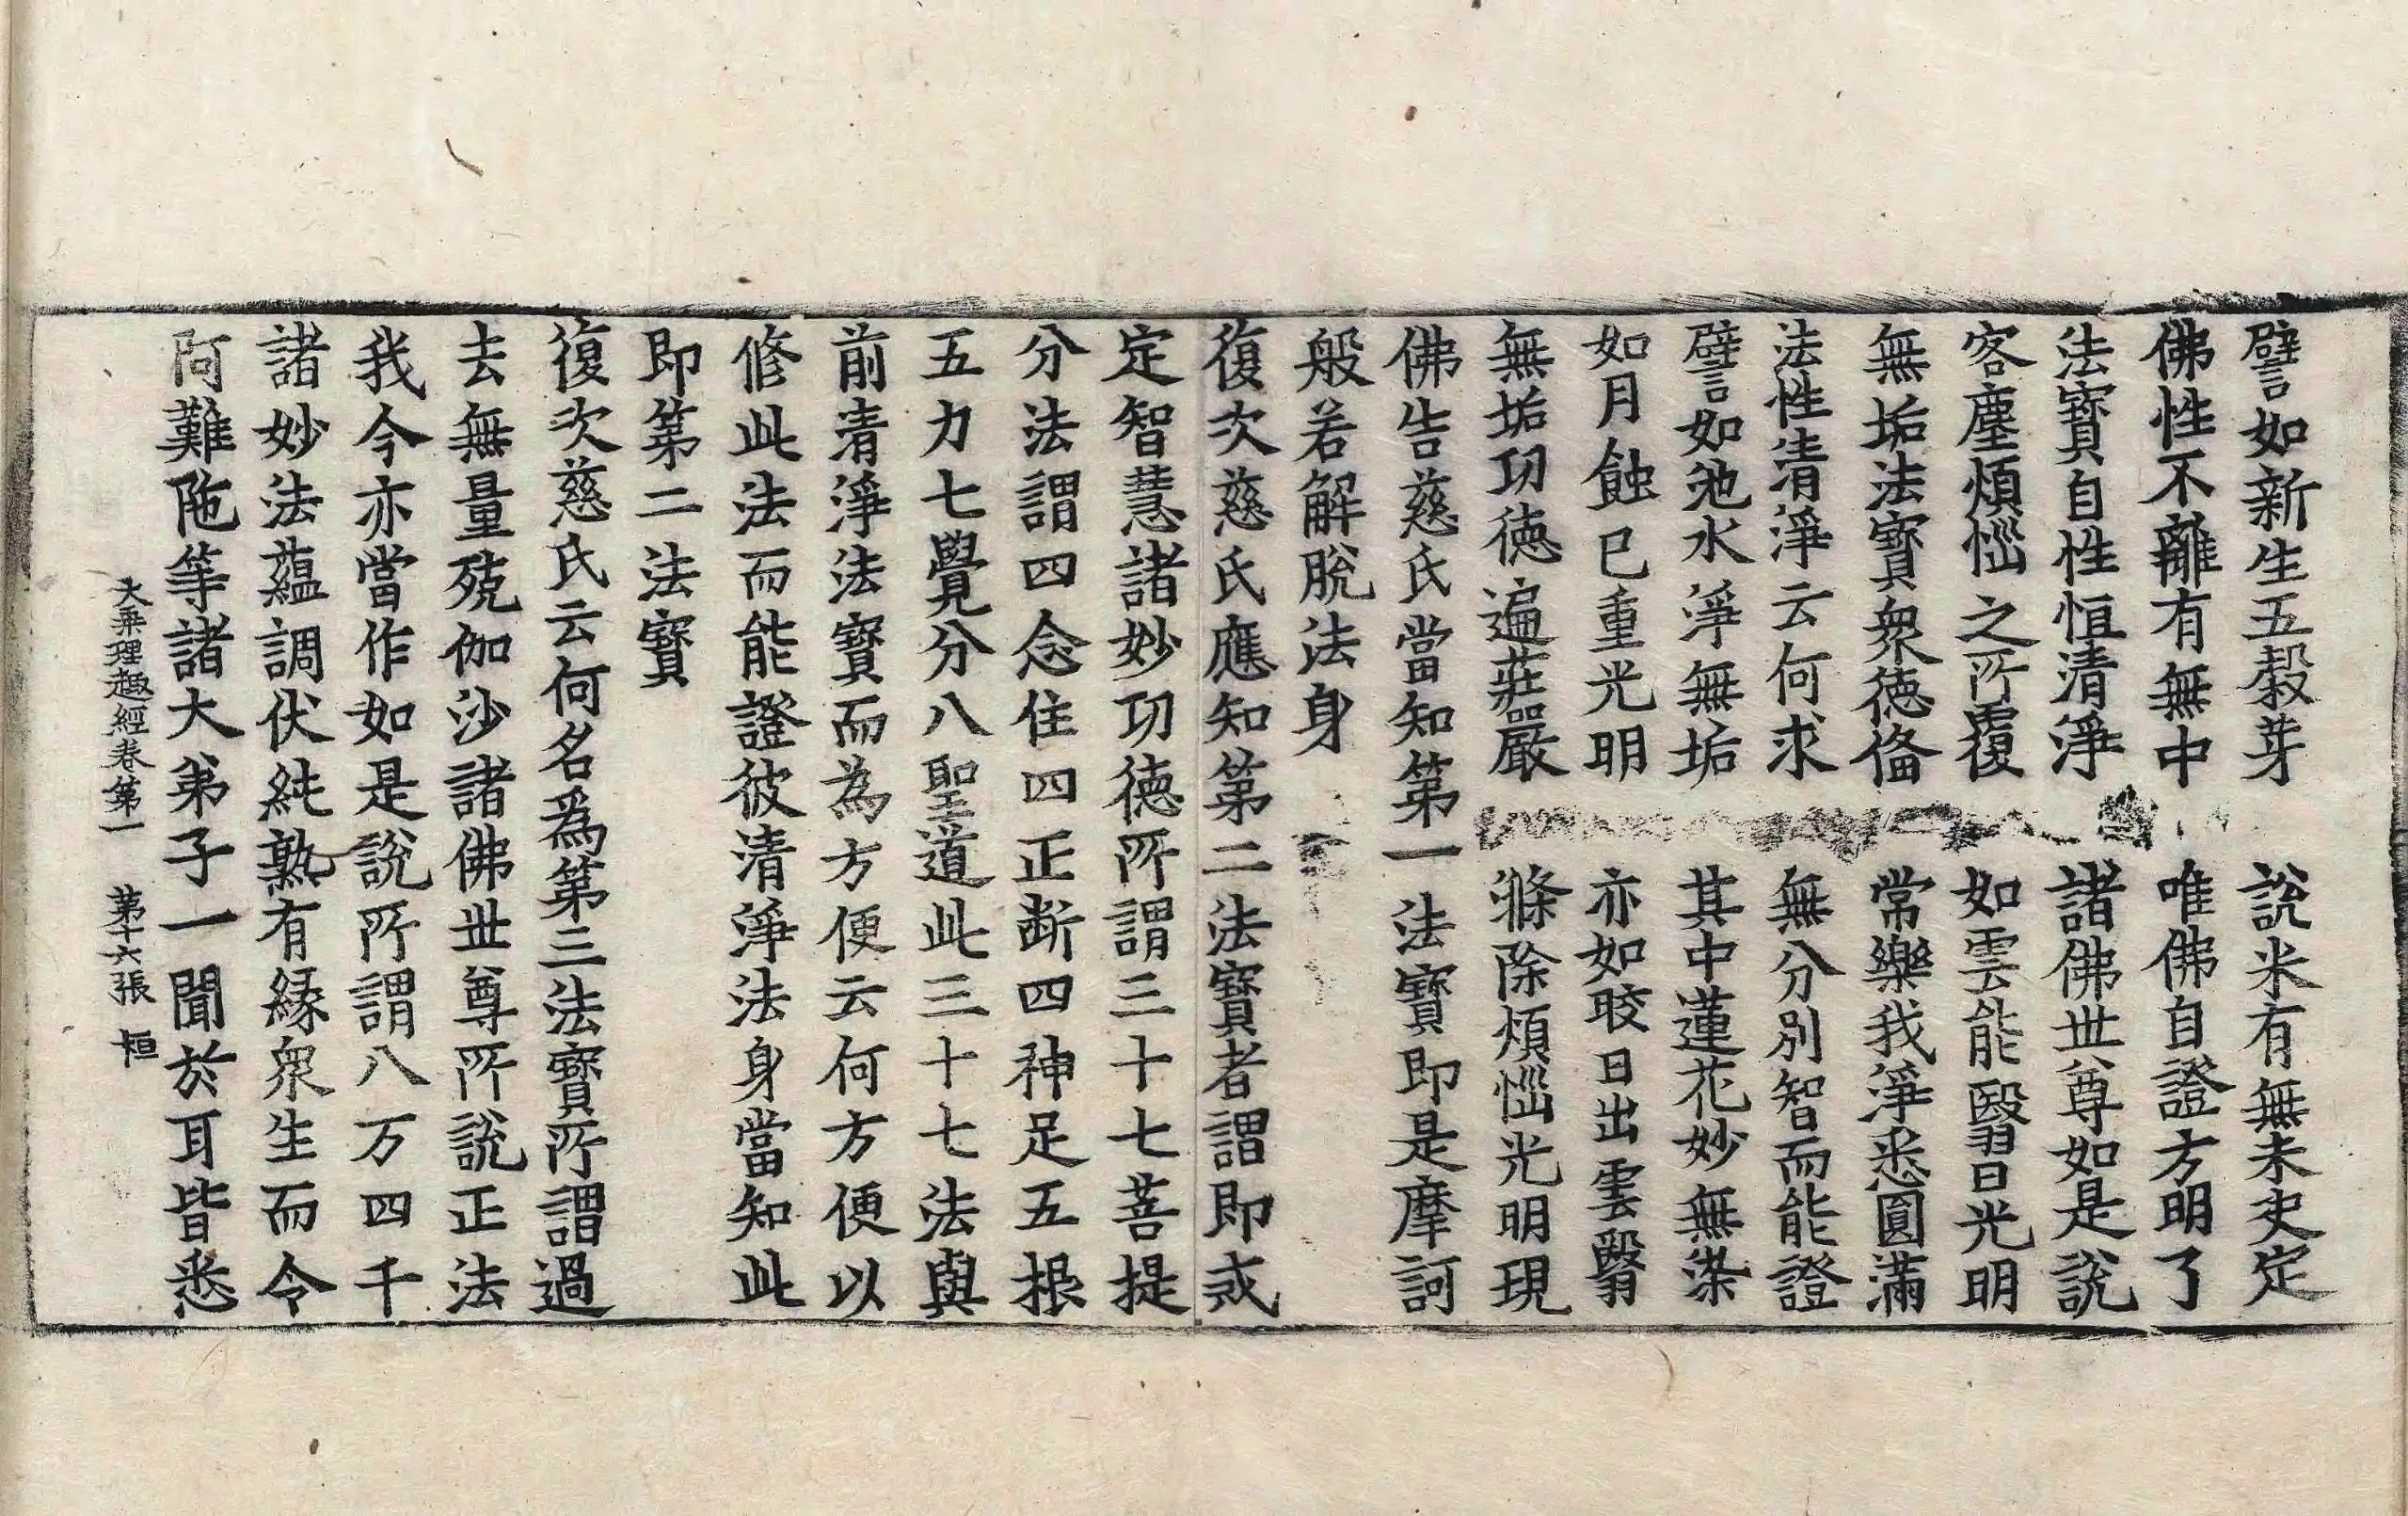 譬如新生五穀芽　說米有無未定
佛性不離有無中　唯佛自證方明了
法寶自性恒清淨　諸佛世尊如是說
客塵煩惱之所覆　如雲能翳日光明
無垢法寶衆徳俻　常樂我淨悉圓滿
法性清淨云何求　無分別智而能證
譬如池水淨無垢　其中蓮花妙無染
如月蝕已重光明　亦如晈日出雲翳
無垢功徳遍莊嚴　滌除煩惱光明現
佛告慈氏當知第一法寶即是摩訶
般若解脫法身
復次慈氏應知第二法寶者謂即戒
定智慧諸妙功徳所謂三十七菩提
分法謂四念住四正断四神足五根
五力七覺分八聖道此三十七法與
前清淨法寶而為方便云何方便以
修此法而能證彼清淨法身當知此
即第二法寶
復次慈氏云何名爲第三法寶所謂過
去無量殑伽沙諸佛世尊所說正法
我今亦當作如是說所謂八万四千
諸妙法蘊調伏純熟有緣衆生而令
阿難陁等諸大弟子一聞於耳皆悉
大乘理趣經卷第一　第十六張　恒